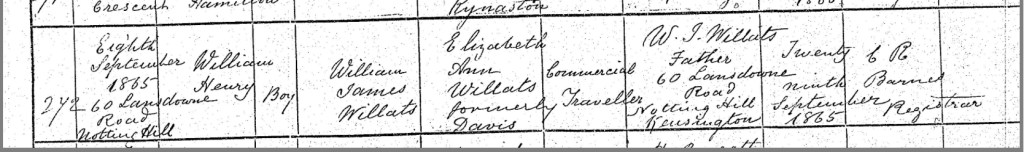 Crescent Hamilton
Kynaston
272
Eighth
September
1865
60 Lansdowne
Road
Notting Hill
William
Henry
Boy
William
James
Willats
Elizabeth
Ann
Willats
formerly
Davis
Commercial
Traveller
W. J. Willats
Father
60 Lansdowne
Road
Notting Hill
Kensington
Twenty
ninth
September
1865
C R
Barnes
Registrar